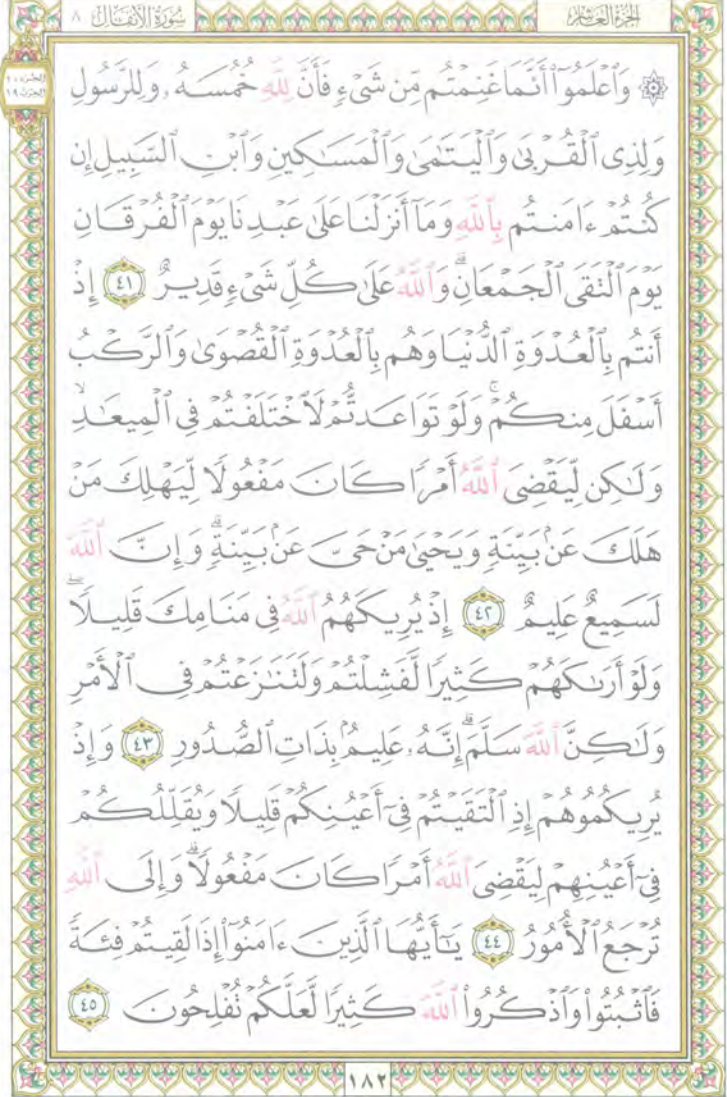 الجزء العاشر
سورة الأنفال ٨
الجزء ١٠
الحزب ١٩
۞ وَٱعۡلَمُوٓاْ أَنَّمَا غَنِمۡتُم مِّن شَيۡءٖ فَأَنَّ لِلَّهِ خُمُسَهُۥ وَلِلرَّسُولِ
وَلِذِي ٱلۡقُرۡبَىٰ وَٱلۡيَتَٰمَىٰ وَٱلۡمَسَٰكِينِ وَٱبۡنِ ٱلسَّبِيلِ إِن
كُنتُمۡ ءَامَنتُم بِٱللَّهِ وَمَآ أَنزَلۡنَا عَلَىٰ عَبۡدِنَا يَوۡمَ ٱلۡفُرۡقَانِ
يَوۡمَ ٱلۡتَقَى ٱلۡجَمۡعَانِۗ وَٱللَّهُ عَلَىٰ كُلِّ شَيۡءٖ قَدِيرٌ ٤١ إِذۡ
أَنتُم بِٱلۡعُدۡوَةِ ٱلدُّنۡيَا وَهُم بِٱلۡعُدۡوَةِ ٱلۡقُصۡوَىٰ وَٱلرَّكۡبُ
أَسۡفَلَ مِنكُمۡۚ وَلَوۡ تَوَاعَدتُّمۡ لَٱخۡتَلَفۡتُمۡ فِي ٱلۡمِيعَٰدِ ۙ
وَلَٰكِن لِّيَقۡضِيَ ٱللَّهُ أَمۡرٗا كَانَ مَفۡعُولٗا لِّيَهۡلِكَ مَنۡ
هَلَكَ عَنۢ بَيِّنَةٖ وَيَحۡيَىٰ مَنۡ حَيَّ عَنۢ بَيِّنَةٖۗ وَإِنَّ ٱللَّهَ
لَسَمِيعٌ عَلِيمٌ ٤٢ إِذۡ يُرِيكَهُمُ ٱللَّهُ فِي مَنَامِكَ قَلِيلٗاۖ
وَلَوۡ أَرَىٰكَهُمۡ كَثِيرٗا لَّفَشِلۡتُمۡ وَلَتَنَٰزَعۡتُمۡ فِي ٱلۡأَمۡرِ
وَلَٰكِنَّ ٱللَّهَ سَلَّمَۗ إِنَّهُۥ عَلِيمُۢ بِذَاتِ ٱلصُّدُورِ ٤٣ وَإِذۡ
يُرِيكُمُوهُمۡ إِذِ ٱلۡتَقَيۡتُمۡ فِيٓ أَعۡيُنِكُمۡ قَلِيلٗا وَيُقَلِّلُكُمۡ
فِيٓ أَعۡيُنِهِمۡ لِيَقۡضِيَ ٱللَّهُ أَمۡرٗا كَانَ مَفۡعُولٗاۗ وَإِلَى ٱللَّهِ
تُرۡجَعُ ٱلۡأُمُورُ ٤٤ يَٰٓأَيُّهَا ٱلَّذِينَ ءَامَنُوٓاْ إِذَا لَقِيتُمۡ فِئَةٗ
فَٱثۡبُتُواْ وَٱذۡكُرُواْ ٱللَّهَ كَثِيرٗا لَّعَلَّكُمۡ تُفۡلِحُونَ ٤٥
١٨٢